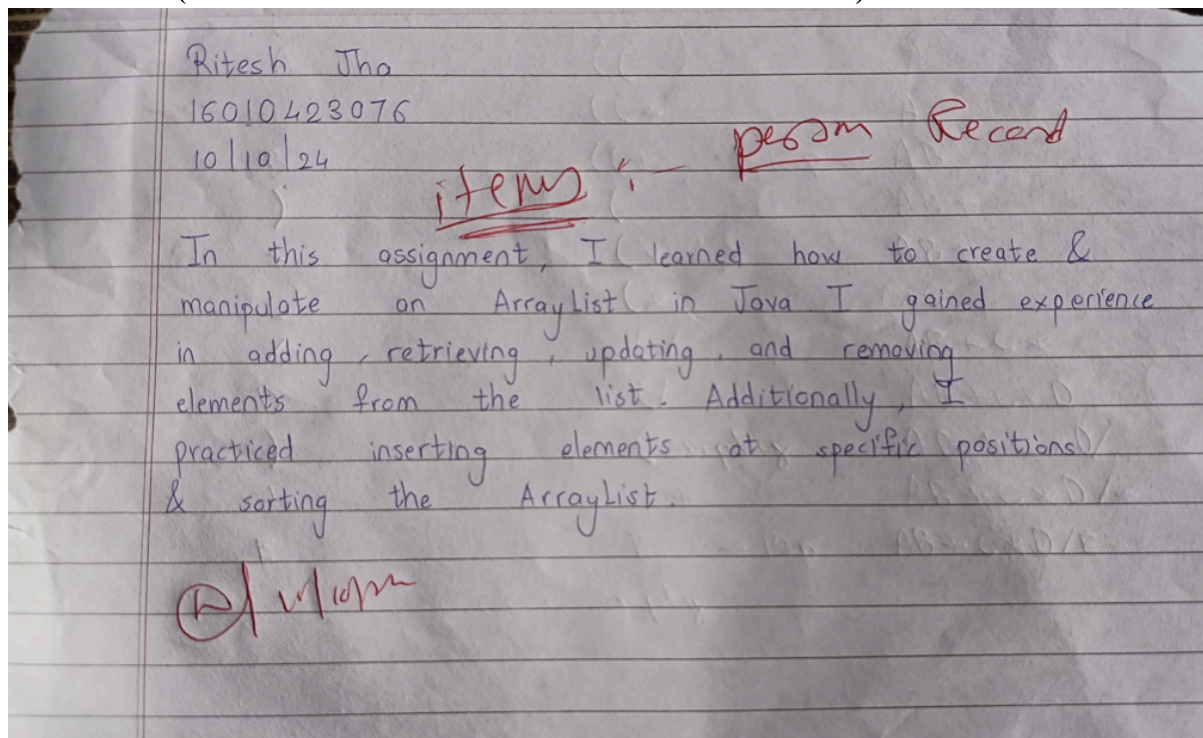 Ritesh Jha
16010423076
10/10/24
person Record
items :-
In this assignment, I learned how to create &
manipulate an ArrayList in Java I gained experience
in adding, retrieving, updating, and removing
elements from the list. Additionally, I
practiced inserting elements at specific positions
& sorting the ArrayList.